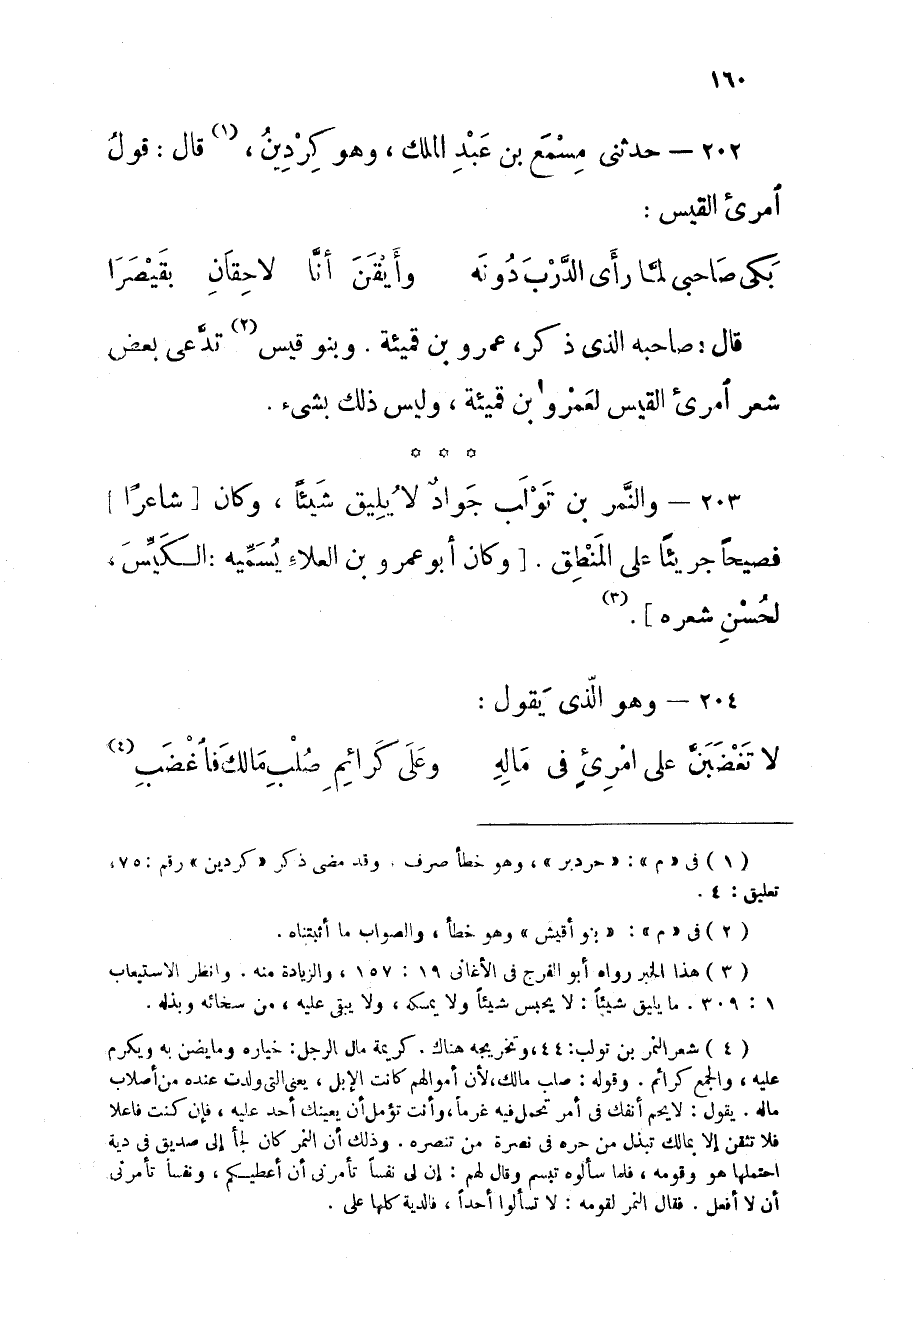 ١٦٠
٢٠٢ — حدثنى مِسْمَع بن عَبْدِ الملك ، وهو كِرْدِينُ ، (١) قال : قولُ
ٱمرئ القيس :
بَكَى صَاحبى لمَّا رأَى الدَّرْبَ دُونَه وأَيْقَنَ أنَّا لاحِقانِ بقَيْصَرَا
قال : صاحبه الذى ذكر، عمرو بن قميئة . وبنو قيس (٢) تدَّعى بعض
شعر ٱمرئ القيس لعَمْرو ٱبن قميئة ، وليس ذلك بشىء .
* * *
٢٠٣ — والنَّمر بن تَوْلَب جَوادٌ لا يُلِيق شَيئًا ، وكان [ شاعرًا ]
فصيحاً جريئًا على المَنْطِق . [ وكان أبو عمرو بن العلاء يُسَمِّيه : الكَيِّسَ ،
لحُسْنِ شعره ] . (٣)
٢٠٤ — وهو الَّذى يَقول :
لا تَغْضَبَنَّ على امْرِئٍ فى مَالِهِ وعَلَى كَرائِمِ صُلْبِ مَالكَ فٱغْضَبِ (٤)
( ١ ) فى « م » : « حردبر » ، وهو خطأ صرف . وقد مضى ذكر « كردين » رقم : ٧٥ ،
تعليق : ٤ .
( ٢ ) فى « م » : « بنو أقيش » وهو خطأ ، والصواب ما أثبتناه .
( ٣ ) هذا الخبر رواه أبو الفرج فى الأغانى ١٩ : ١٥٧ ، والزيادة منه . وانظر الاستيعاب
١ : ٣٠٩ . ما يليق شيئاً : لا يحبس شيئاً ولا يمسكه ، ولا يبقى عليه ، من سخائه وبذله .
( ٤ ) شعر النمر بن تولب : ٤٤ ، وتخريجه هناك . كريمة مال الرجل : خياره وما يضن به ويكرم
عليه ، والجمع كرائم . وقوله : صلب مالك ، لأن أموالهم كانت الإبل ، يعنى التى ولدت عنده من أصلاب
ماله . يقول : لا يحم أنفك فى أمر تحمل فيه غرماً ، وأنت تؤمل أن يعينك أحد عليه ، فإن كنت فاعلا
فلا تثقن إلا بمالك تبذل من حره فى نصرة من تنصره . وذلك أن النمر كان لجأ إلى صديق فى دية
احتملها هو وقومه ، فلما سألوه تبسم وقال لهم : إن لى نفساً تأمرنى أن أعطيكم ، ونفساً تأمرنى
أن لا أفعل . فقال النمر لقومه : لا تسألوا أحداً ، فالدية كلها على .